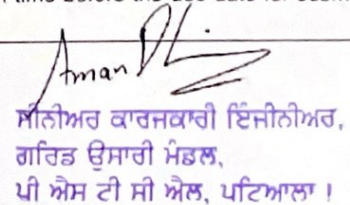 Aman
ਸੀਨੀਅਰ ਕਾਰਜਕਾਰੀ ਇੰਜੀਨੀਅਰ,
ਗਰਿਡ ਉਸਾਰੀ ਮੰਡਲ,
ਪੀ ਐਸ ਟੀ ਸੀ ਐਲ, ਪਟਿਆਲਾ !